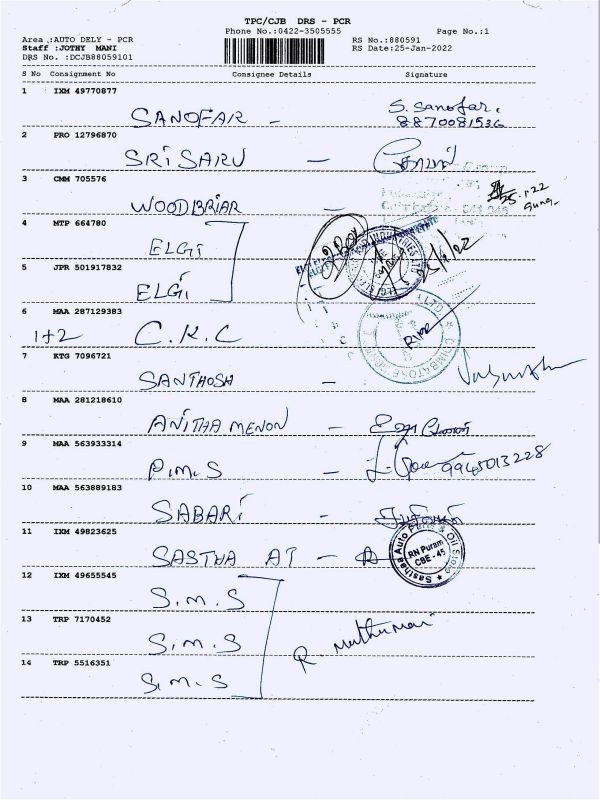 TPC/CJB DRS - PCR
Phone No.:0422-3505555 Page No.:1
Area :AUTO DELY - PCR RS No.:880591
Staff :JOTHY MANI RS Date:25-Jan-2022
DRS No. :DCJB88059101
S No Consignment No Consignee Details Signature
1 IXM 49770877
SANOFAR - S. Sanofar.
8870081536
2 PRO 12796870
SRI SARU -
3 CMM 705576
WOODBRIAR
4 MTP 664780
ELGi
5 JPR 501917832
ELGi
6 MAA 287129383
1+2 C.K.C
7 KTG 7096721
SANTHOSH -
8 MAA 281218610
ANITHA MENON -
9 MAA 563933314
P.M.S - 9965013228
10 MAA 563889183
SABARI -
11 IXM 49823625
SASTHA AT -
Sasthaa Auto Parts & Oil Store
RN Puram
CBE - 45
12 IXM 49655545
S.M.S
13 TRP 7170452
S.M.S R. Muthumari
14 TRP 5516351
S.M.S